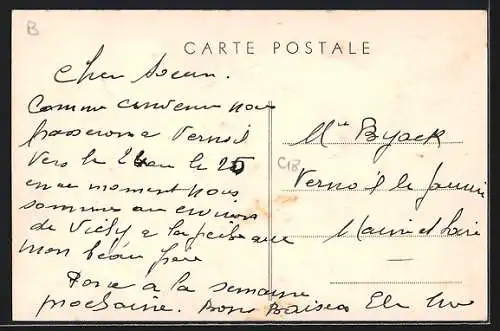 B
CARTE POSTALE
Cher Soeur.
Comme convenue nous
passerons a Vernoil
Vers le 24 ou le 25
en ce moment nous
somme au environs
de Vichy a la peche avec
mon beau frère
Donc a la semaine
prochaine. Bons Baisers
Mlle
C18
Vernoil le
Maine et Loire